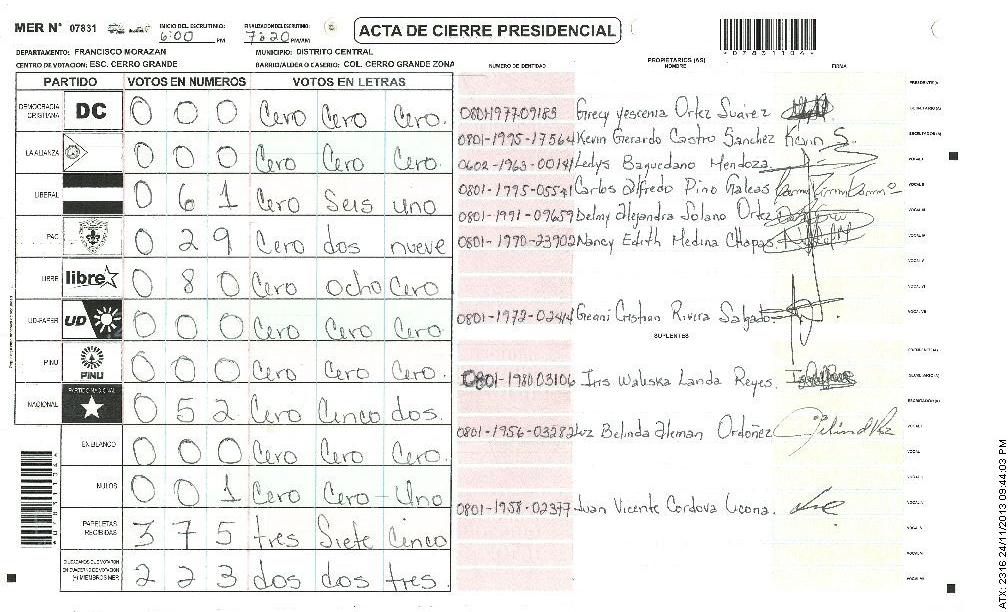 MER Nº 07831 INICIO DEL ESCRUTINIO: 6:00 PM FINALIZACION DEL ESCRUTINIO: 7:20 PM/AM
ACTA DE CIERRE PRESIDENCIAL
DEPARTAMENTO: FRANCISCO MORAZAN MUNICIPIO: DISTRITO CENTRAL
CENTRO DE VOTACION: ESC. CERRO GRANDE BARRIO/ALDEA O CASERIO: COL. CERRO GRANDE ZONA
PARTIDO VOTOS EN NUMEROS VOTOS EN LETRAS
DEMOCRACIA CRISTIANA DC 0 0 0 Cero Cero Cero.
LA ALIANZA 0 0 0 Cero Cero Cero.
LIBERAL 0 6 1 Cero Seis uno
PAC 0 2 9 Cero dos nueve
LIBRE libre 0 8 0 Cero ocho Cero
UD-FAPER UD 0 0 0 Cero Cero Cero
PINU PINU 0 0 0 Cero Cero Cero.
NACIONAL PARTIDO NACIONAL 0 5 2 Cero Cinco dos.
EN BLANCO 0 0 0 Cero Cero Cero.
NULOS 0 0 1 Cero Cero - Uno
PAPELETAS RECIBIDAS 3 7 5 tres Siete Cinco
CIUDADANOS QUE VOTARON EN CUADERNO DE VOTACION (+) MIEMBROS MER 2 2 3 dos dos tres.
07831104
NUMERO DE IDENTIDAD PROPIETARIOS (AS) NOMBRE FIRMA
PRESIDENTE(A)
0801-1977-09183 Grecy yescenia Ortez Suárez SECRETARIO(A)
0801-1995-17564 Kevin Gerardo Castro Sanchez Kevin S. ESCRUTADOR(A)
0602-1963-00141 Ledys Baquedano Mendoza. VOCAL I
0801-1995-05541 Carlos alfredo Pino Galeas VOCAL II
0801-1991-09659 Delmy alejandra Solano Ortez VOCAL III
0801-1970-23902 Nancy Edith Medina Chapas VOCAL IV
VOCAL V
VOCAL VI
0801-1972-02414 Geani Cristian Rivera Salgado. VOCAL VII
SUPLENTES
PRESIDENTE(A)
0801-1980 03106 Iris Waleska Landa Reyes. SECRETARIO(A)
ESCRUTADOR(A)
0801-1956-03282 Luz Belinda Aleman Ordoñez VOCAL I
0801-1958-02377 Juan Vicente Cordova Licona.
ATX: 2316 24/11/2013 09:44:03 PM